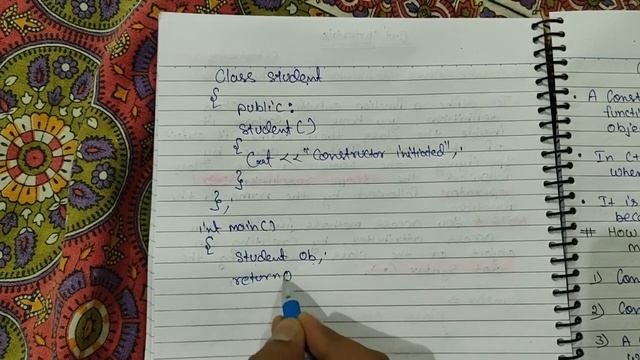 Class student
{
public:
student()
{
Cout << "Constructor initiated";
}
};
int main()
{
student ob;
return 0
• A Const
functi
obje
• In C+
when
• It is
beca
# How
m
1) Con
2) Con
3) A